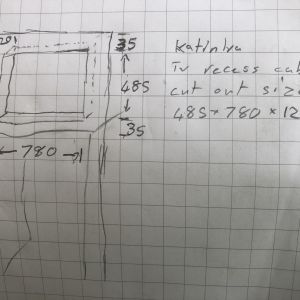 35
485
35
780
Katinka
Tv recess cab
cut out size
485 × 780 × 12